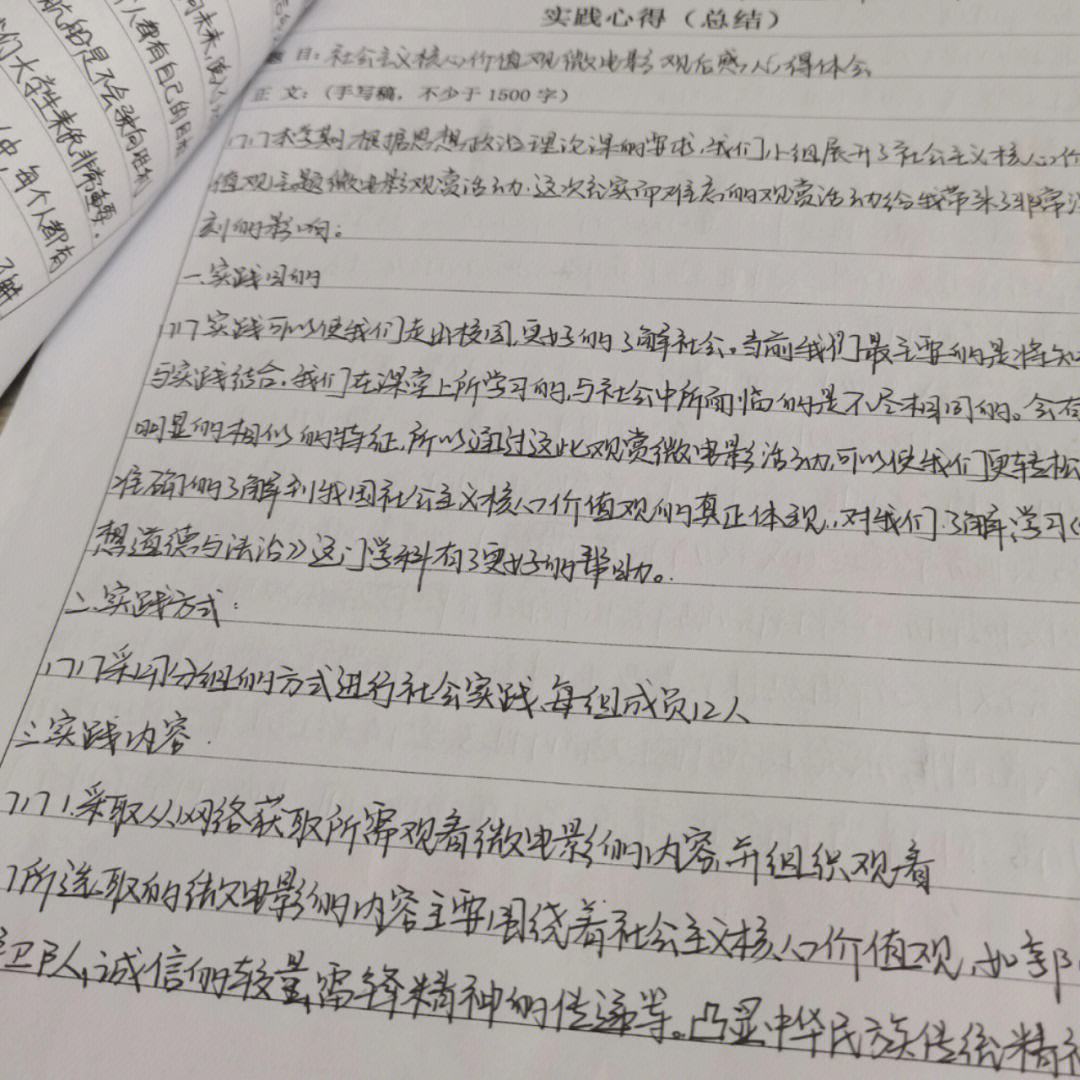 实践心得（总结）
题 目：社会主义核心价值观微电影观后感心得体会
正 文：（手写稿，不少于1500字）
本学期根据思想政治理论课的要求，我们小组展开了社会主义核心价
值观主题微电影观赏活动，这次充实而难忘的观赏活动给我带来了非常深
刻的影响：
一.实践目的
实践可以使我们走出校园，更好的了解社会。当前我们最主要的是将知
与实践结合。我们在课堂上所学习的，与社会中所面临的是不尽相同的。会有
明显的相似的特征，所以通过这此观赏微电影活动，可以使我们更轻松
准确的了解到我国社会主义核心价值观的真正体现，对我们了解，学习《
想道德与法治》这门学科有了更好的帮助。
二.实践方式：
采用分组的方式进行社会实践，每组成员12人
三.实践内容
1.采取从网络获取所需观看微电影的内容，并组织观看
所选取的微电影的内容主要围绕着社会主义核心价值观，如郭
卫队，诚信的较量，雷锋精神的传递等。凸显中华民族传统精神
航船是不会驶向胜利
个人都有自己的目标
们大学生来说非常重要.
每个人都有
了解